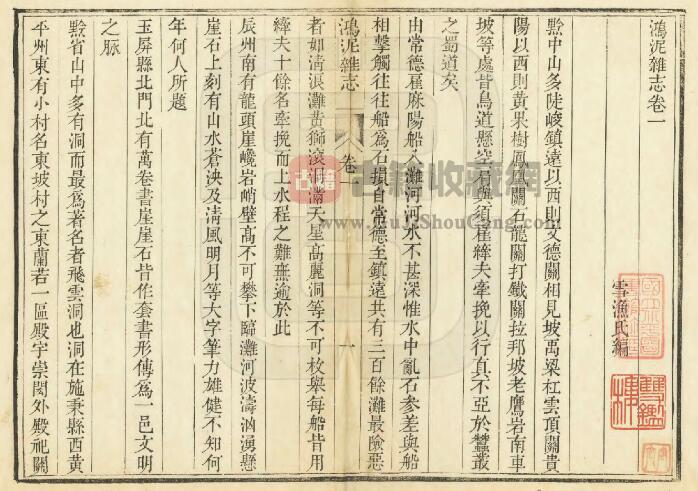 鴻泥雜志卷一
雪漁氏編
黔中山多陡峻鎮遠以西則文德關相見坡禹梁杠雲頂關貴
陽以西則黄果樹鳳凰關石龍關打鐵關拉邦坡老鷹岩南車
坡等處皆鳥道懸空肩輿須雇縴夫牽挽以行真不亞於蠶叢
之蜀道矣
由常德雇麻陽船入灘河河水不甚深惟水中亂石參差與船
相擊觸往往船為石損自常德至鎮遠共有三百餘灘最險惡
鴻泥雜志
卷一
一
者如清浪灘黄獅滚洞滿天星高麗洞等不可枚舉每船皆用
縴夫十餘名牽挽而上水程之難無逾於此
辰州南有龍頭崖巉岩峭壁高不可攀下臨灘河波濤洶湧懸
崖石上刻有山水蒼泱及清風明月等大字筆力雄健不知何
年何人所題
玉屏縣北門北有萬卷書崖崖石皆作套書形傳為一邑文明
之脉
黔省山中多有洞而最為著名者飛雲洞也洞在施秉縣西黄
平州東有小村名東坡村之東蘭若一區殿宇崇閎外殿祀關
古籍收藏網
www.GuJiShouCang.com